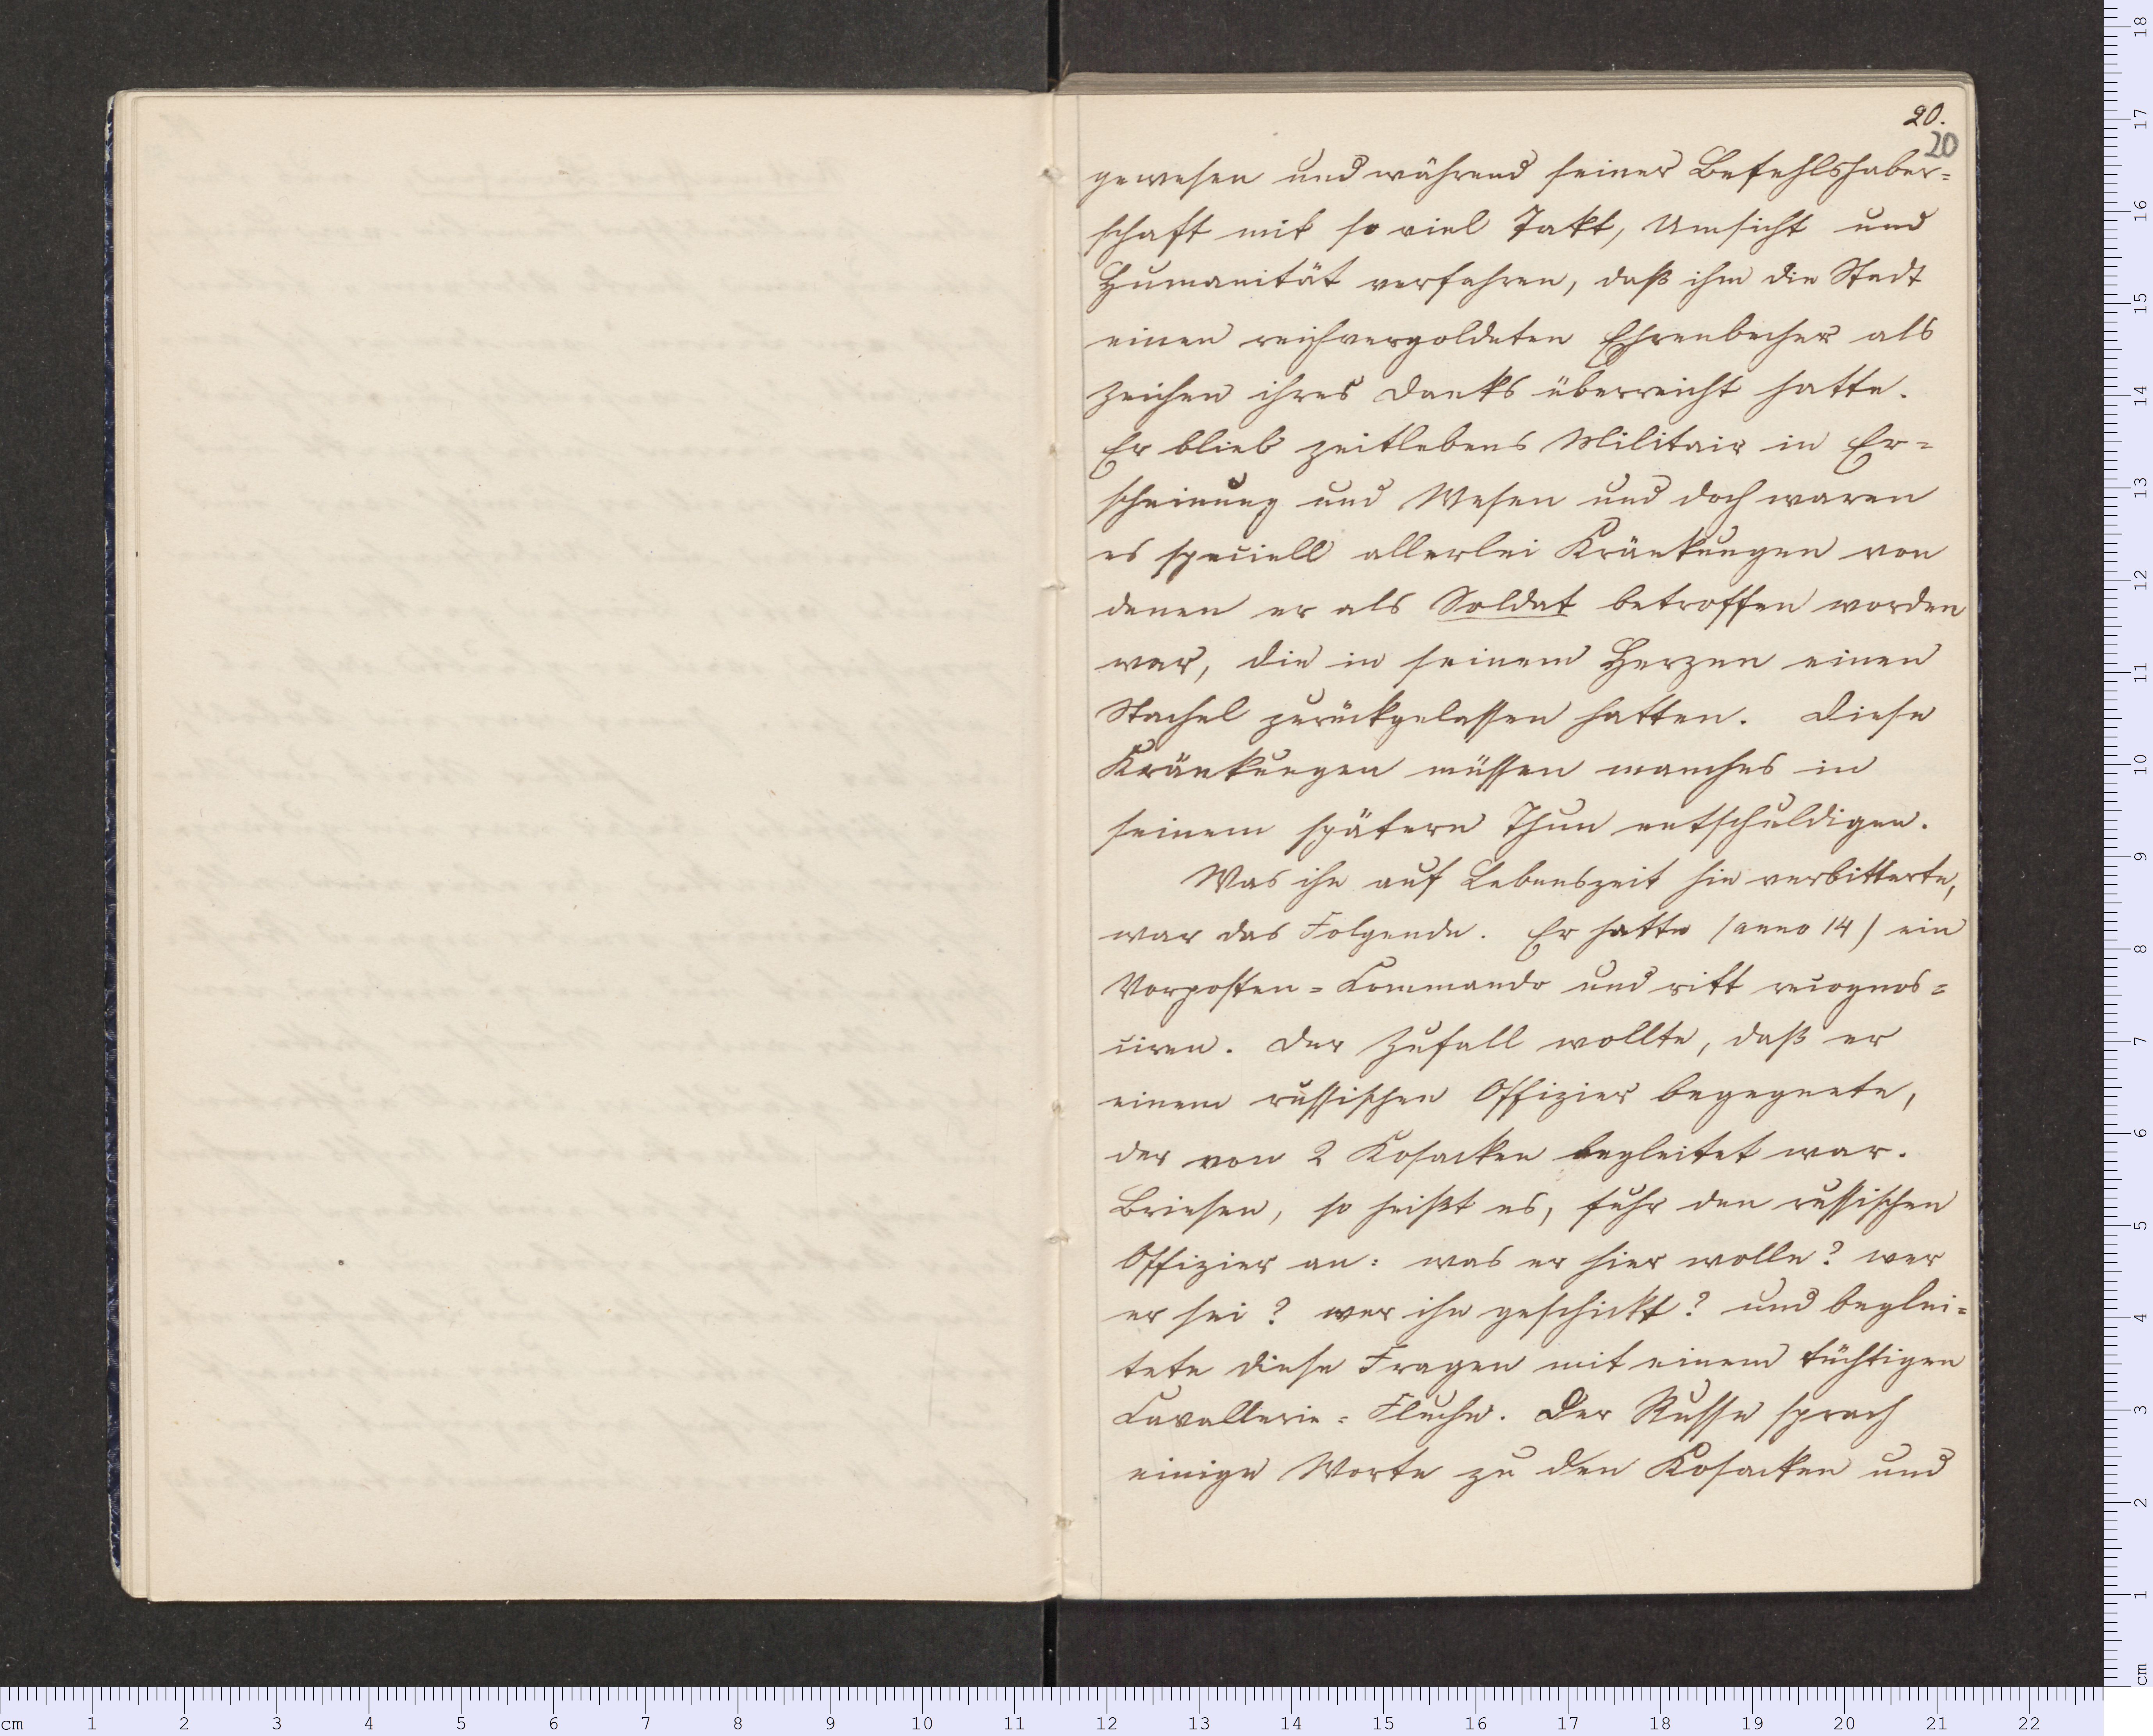 20.
20
gewesen und während seiner Befehlshaber=
schaft mit so viel Takt, Umsicht und
Humanität verfahren, daß ihm die Stadt
einen reichvergoldeten Ehrenbecher als
Zeichen ihres Danks überreicht hatte.
Er blieb zeitlebens Militair in Er=
scheinung und Wesen und doch waren
es speciell allerlei Kränkungen von
denen er als Soldat betroffen worden
war, die in seinem Herzen einen
Stachel zurückgelassen hatten. Diese
Kränkungen müssen manches in
seinem spätern Thun entschuldigen.
Was ihn auf Lebenszeit hin verbitterte,
war das Folgende. Er hatte (anno 14) ein
Vorposten=Commando und ritt recognos=
ciren. Der Zufall wollte, daß er
einem russischen Offizier begegnete,
der von 2 Kosacken begleitet war.
Briesen, so heißt es, fuhr den russischen
Offizier an: was er hier wolle? wer
er sei? wer ihn geschickt? und beglei=
tete diese Fragen mit einem tüchtigen
Cavallerie=Fluche. Der Russe sprach
einige Worte zu den Kosacken und
cm 1 2 3 4 5 6 7 8 9 10 11 12 13 14 15 16 17 18 19 20 21 22
cm 1 2 3 4 5 6 7 8 9 10 11 12 13 14 15 16 17 18